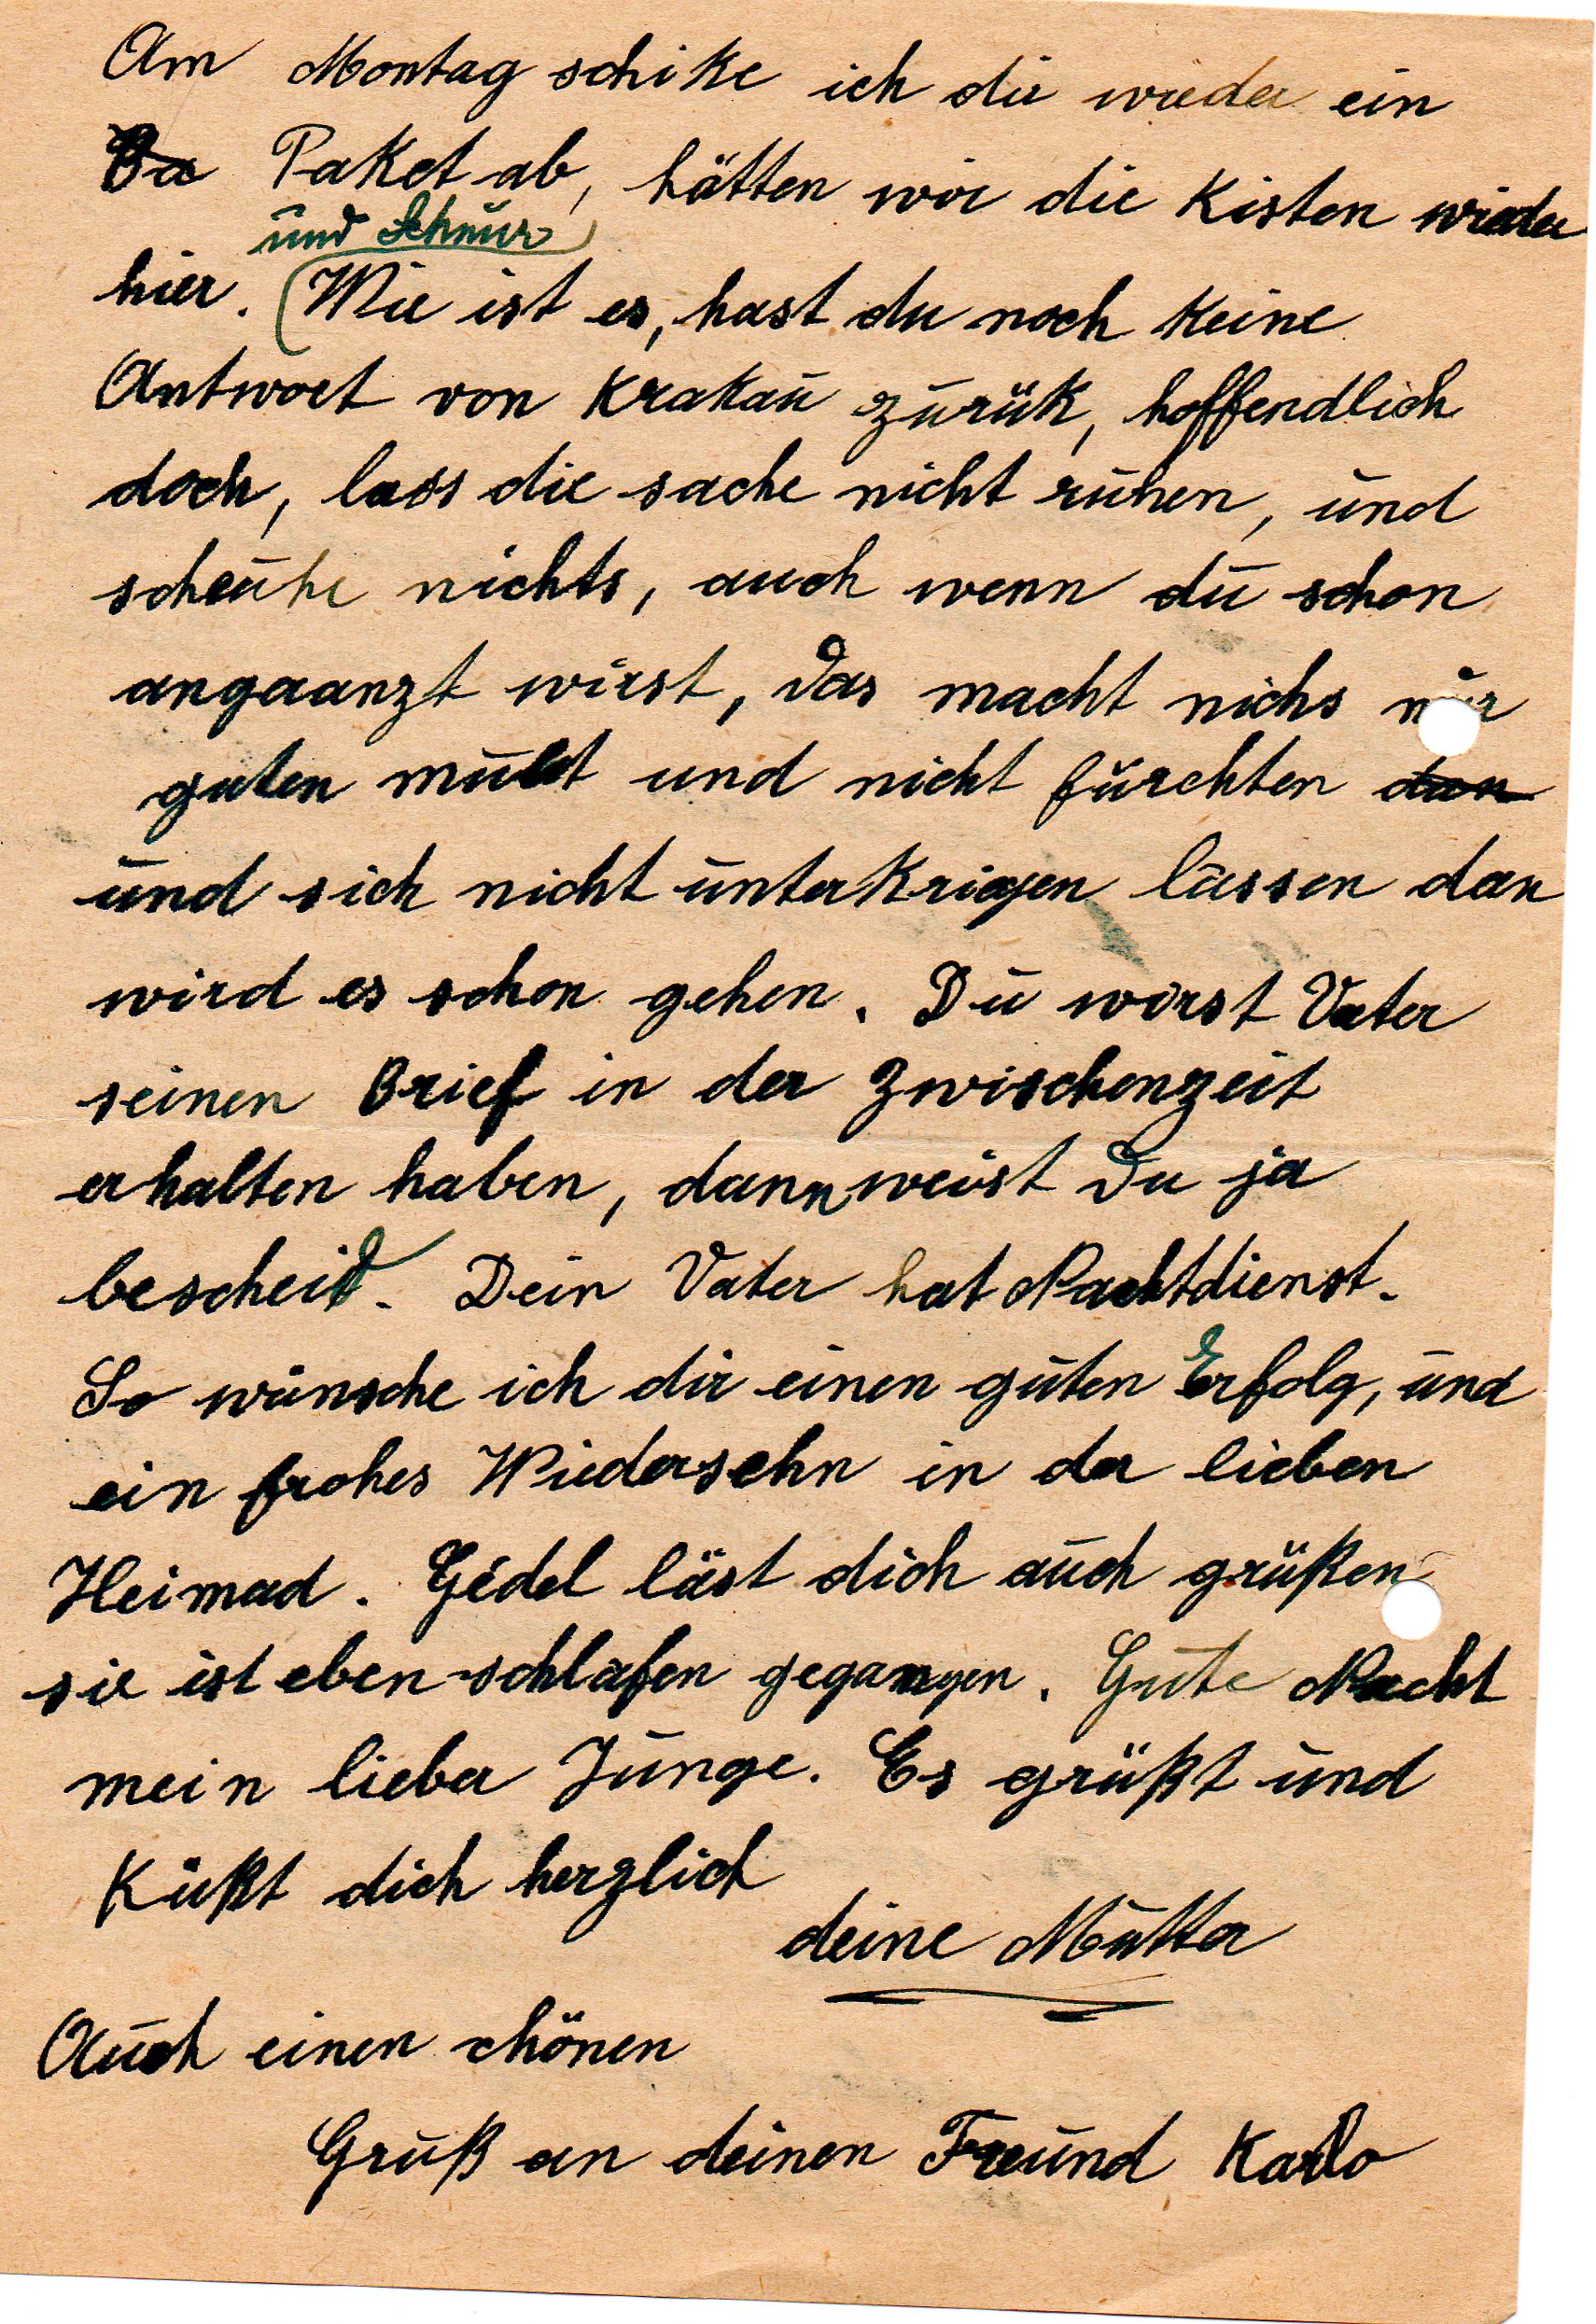 Am Montag schike ich dir wieder ein
Ba Paket ab, hätten wir die Kisten wieder
und Schnur
hier. (Wie ist es, hast du noch keine
Antwort von Krakau zurük, hoffendlich
doch, lass die sache nicht ruhen, und
scheuhe nichts, auch wenn du schon
angeranzt wirst, das macht nichs nur
guten muet und nicht fürchten dan
und sich nicht unterkriegen lassen dan
wird es schon gehen. Du wirst Vater
seinen Brief in der Zwischenzeit
erhalten haben, dann weist Du ja
bescheid. Dein Vater hat Nachtdienst.
So wünsche ich dir einen guten Erfolg, und
ein frohes Wiedersehn in der lieben
Heimad. Gedel läst dich auch grüßen
sie ist eben schlafen gegangen. Gute Nacht
mein lieber Junge. Es grüßt und
Küßt dich herzlich
deine Mutter
Auch einen chönen
Gruß an deinen Freund Karlo